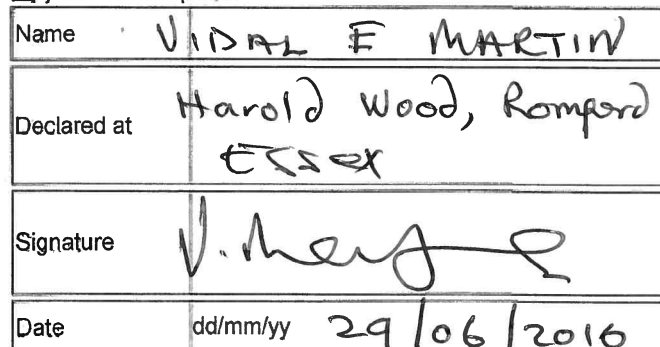 Name VIDAL E MARTIN
Declared at Harold Wood, Romford
Essex
Signature V.
Date dd/mm/yy 29/06/2016